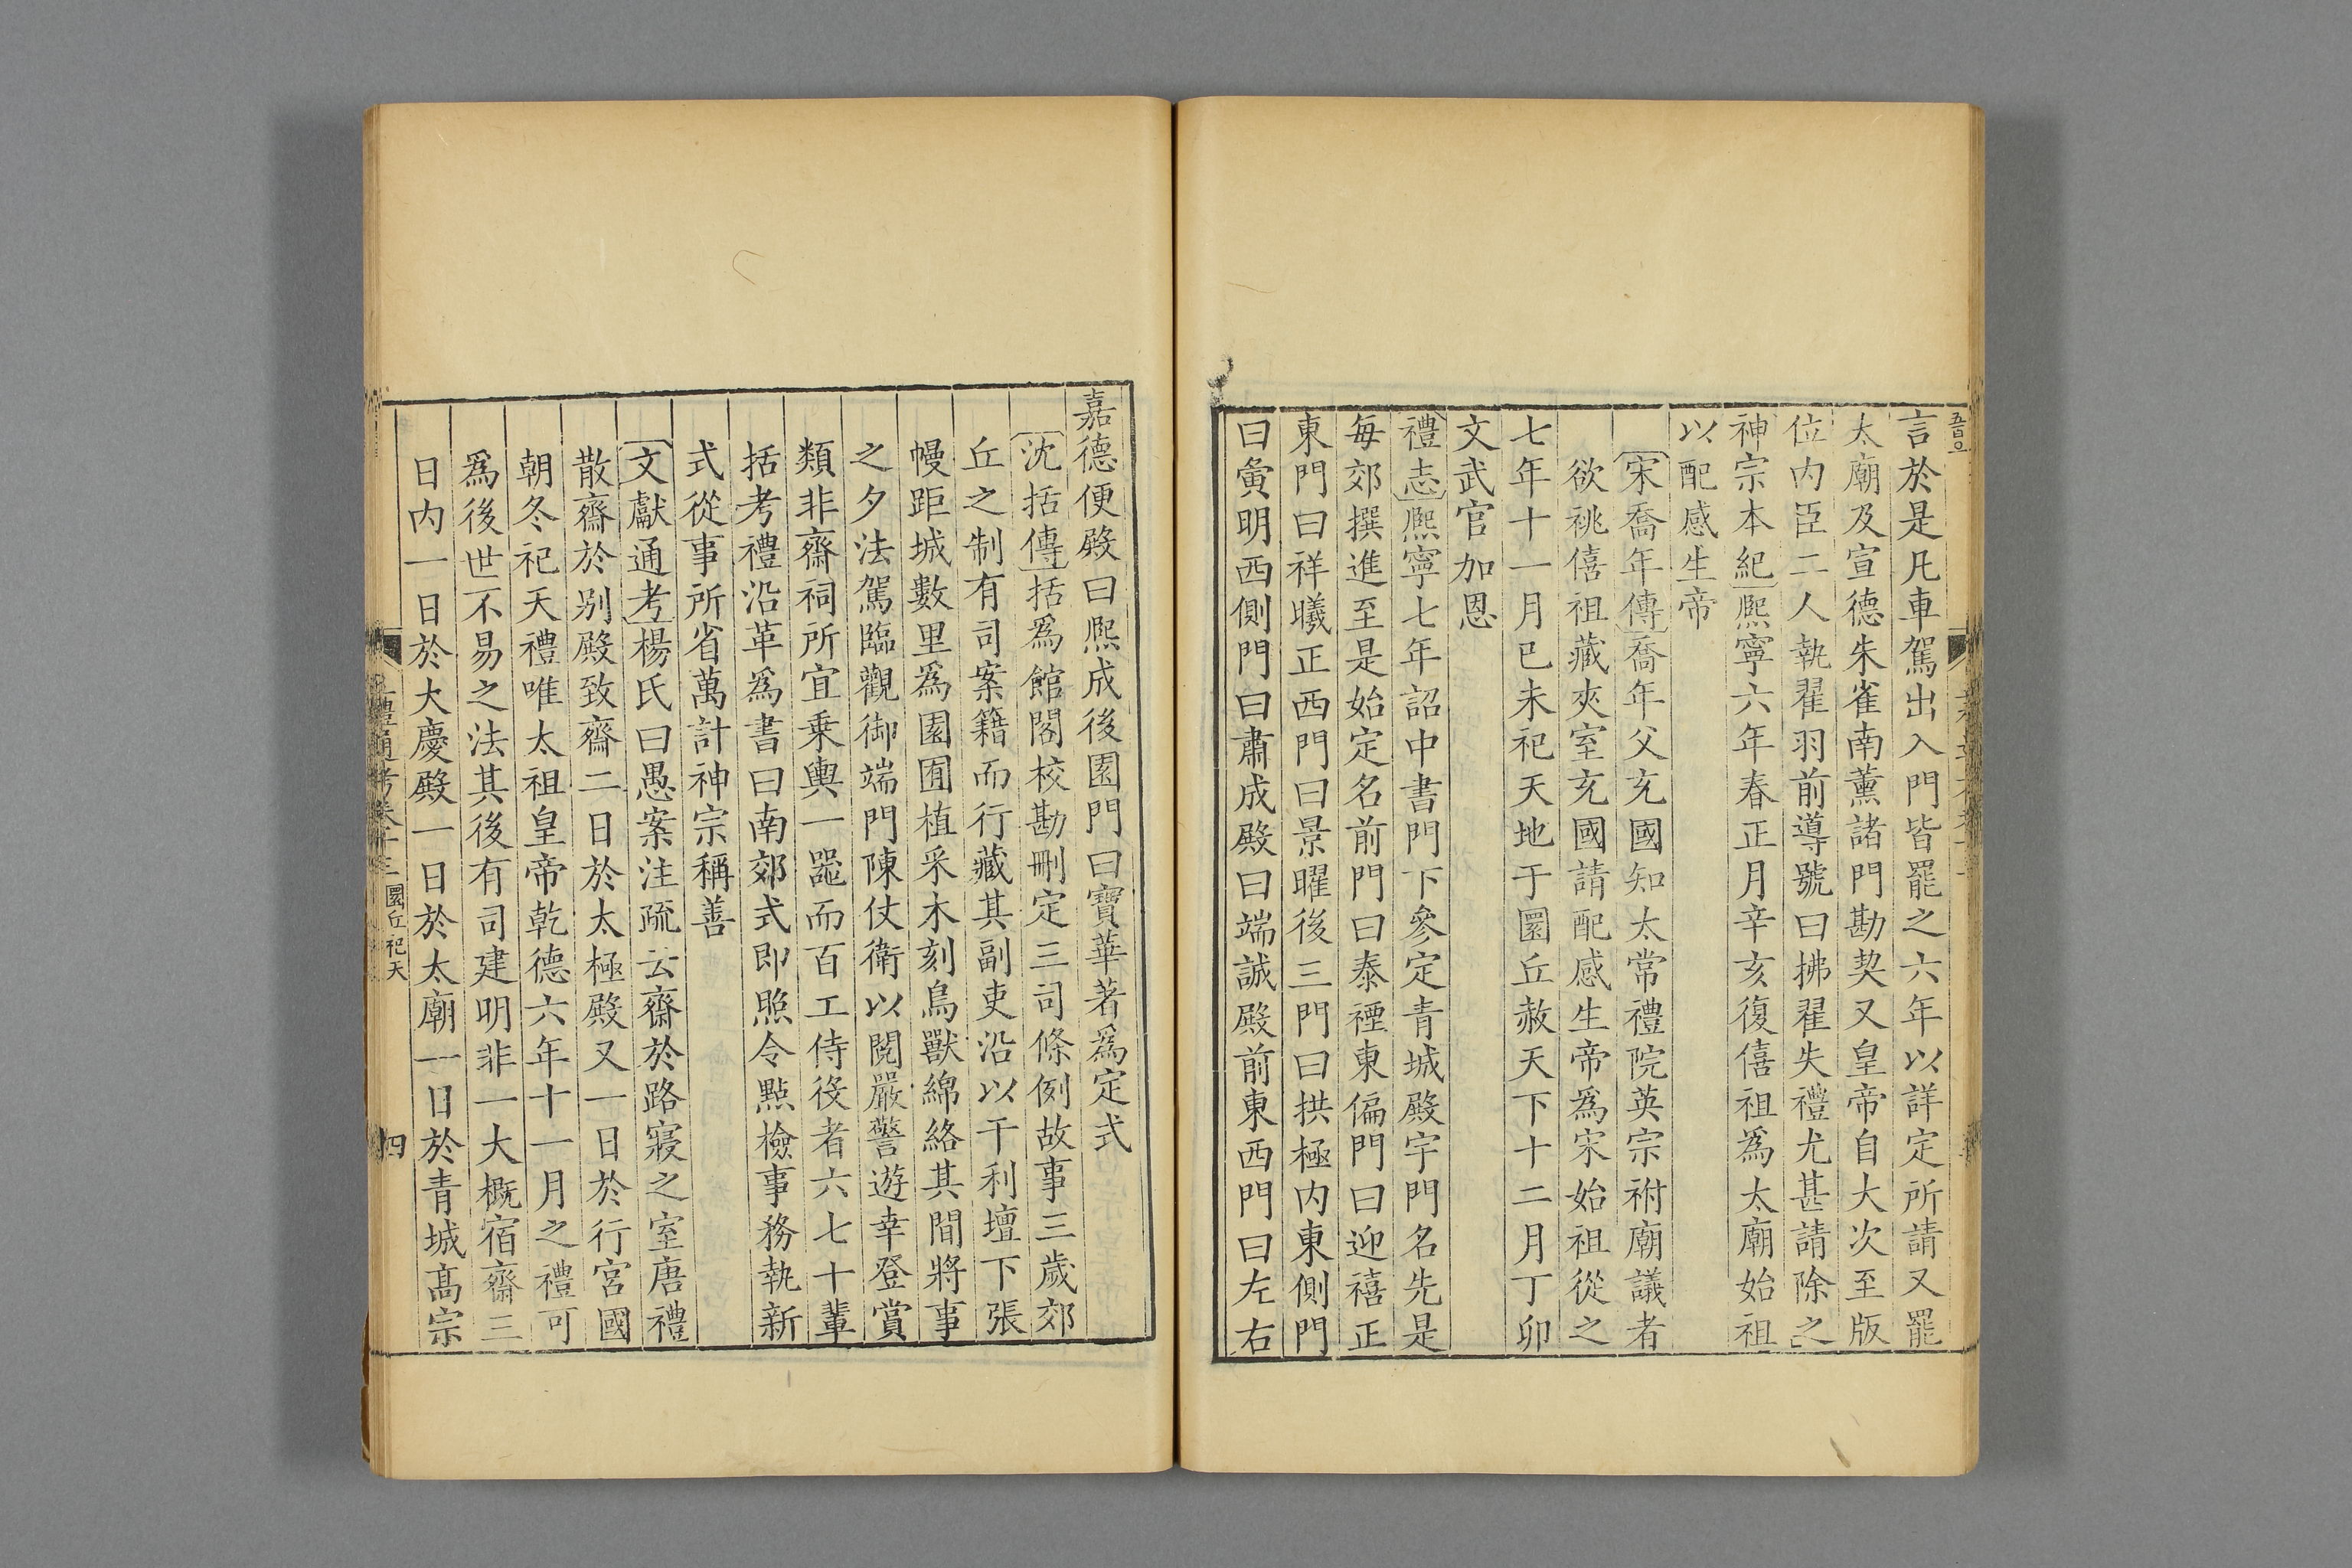 言於是凡車駕出入門皆罷之六年以詳定所請又罷
太廟及宣德朱雀南薰諸門勘契又皇帝自大次至版
位內臣二人執翟羽前導號曰拂翟失禮尤甚請除之
神宗本紀熙寧六年春正月辛亥復僖祖爲太廟始祖
以配感生帝
宋喬年傳喬年父充國知太常禮院英宗祔廟議者
欲祧僖祖藏夾室充國請配感生帝爲宋始祖從之
七年十一月已未祀天地于圜丘赦天下十二月丁卯
文武官加恩
禮志熙寧七年詔中書門下參定青城殿宇門名先是
每郊撰進至是始定名前門曰泰禋東偏門曰迎禧正
東門曰祥曦正西門曰景曜後三門曰拱極內東側門
曰夤明西側門曰肅成殿曰端誠殿前東西門曰左右
嘉德便殿曰熙成後園門曰寶華著爲定式
沈括傳括爲館閣校勘刪定三司條例故事三歲郊
丘之制有司案籍而行藏其副吏沿以干利壇下張
幔距城數里爲園囿植采木刻鳥獸綿絡其間將事
之夕法駕臨觀御端門陳仗衛以閱嚴警遊幸登賞
類非齋祠所宜乗輿一器而百工侍役者六七十輩
括考禮沿革爲書曰南郊式即照令點檢事務執新
式從事所省萬計神宗稱善
文獻通考楊氏曰愚案注疏云齋於路寢之室唐禮
散齋於别殿致齋二日於太極殿又一日於行宮國
朝冬祀天禮唯太祖皇帝乾德六年十一月之禮可
爲後世不易之法其後有司建明非一大概宿齋三
日內一日於大慶殿一日於太廟一日於青城髙宗
禮通考卷十三 圜丘祀天
四